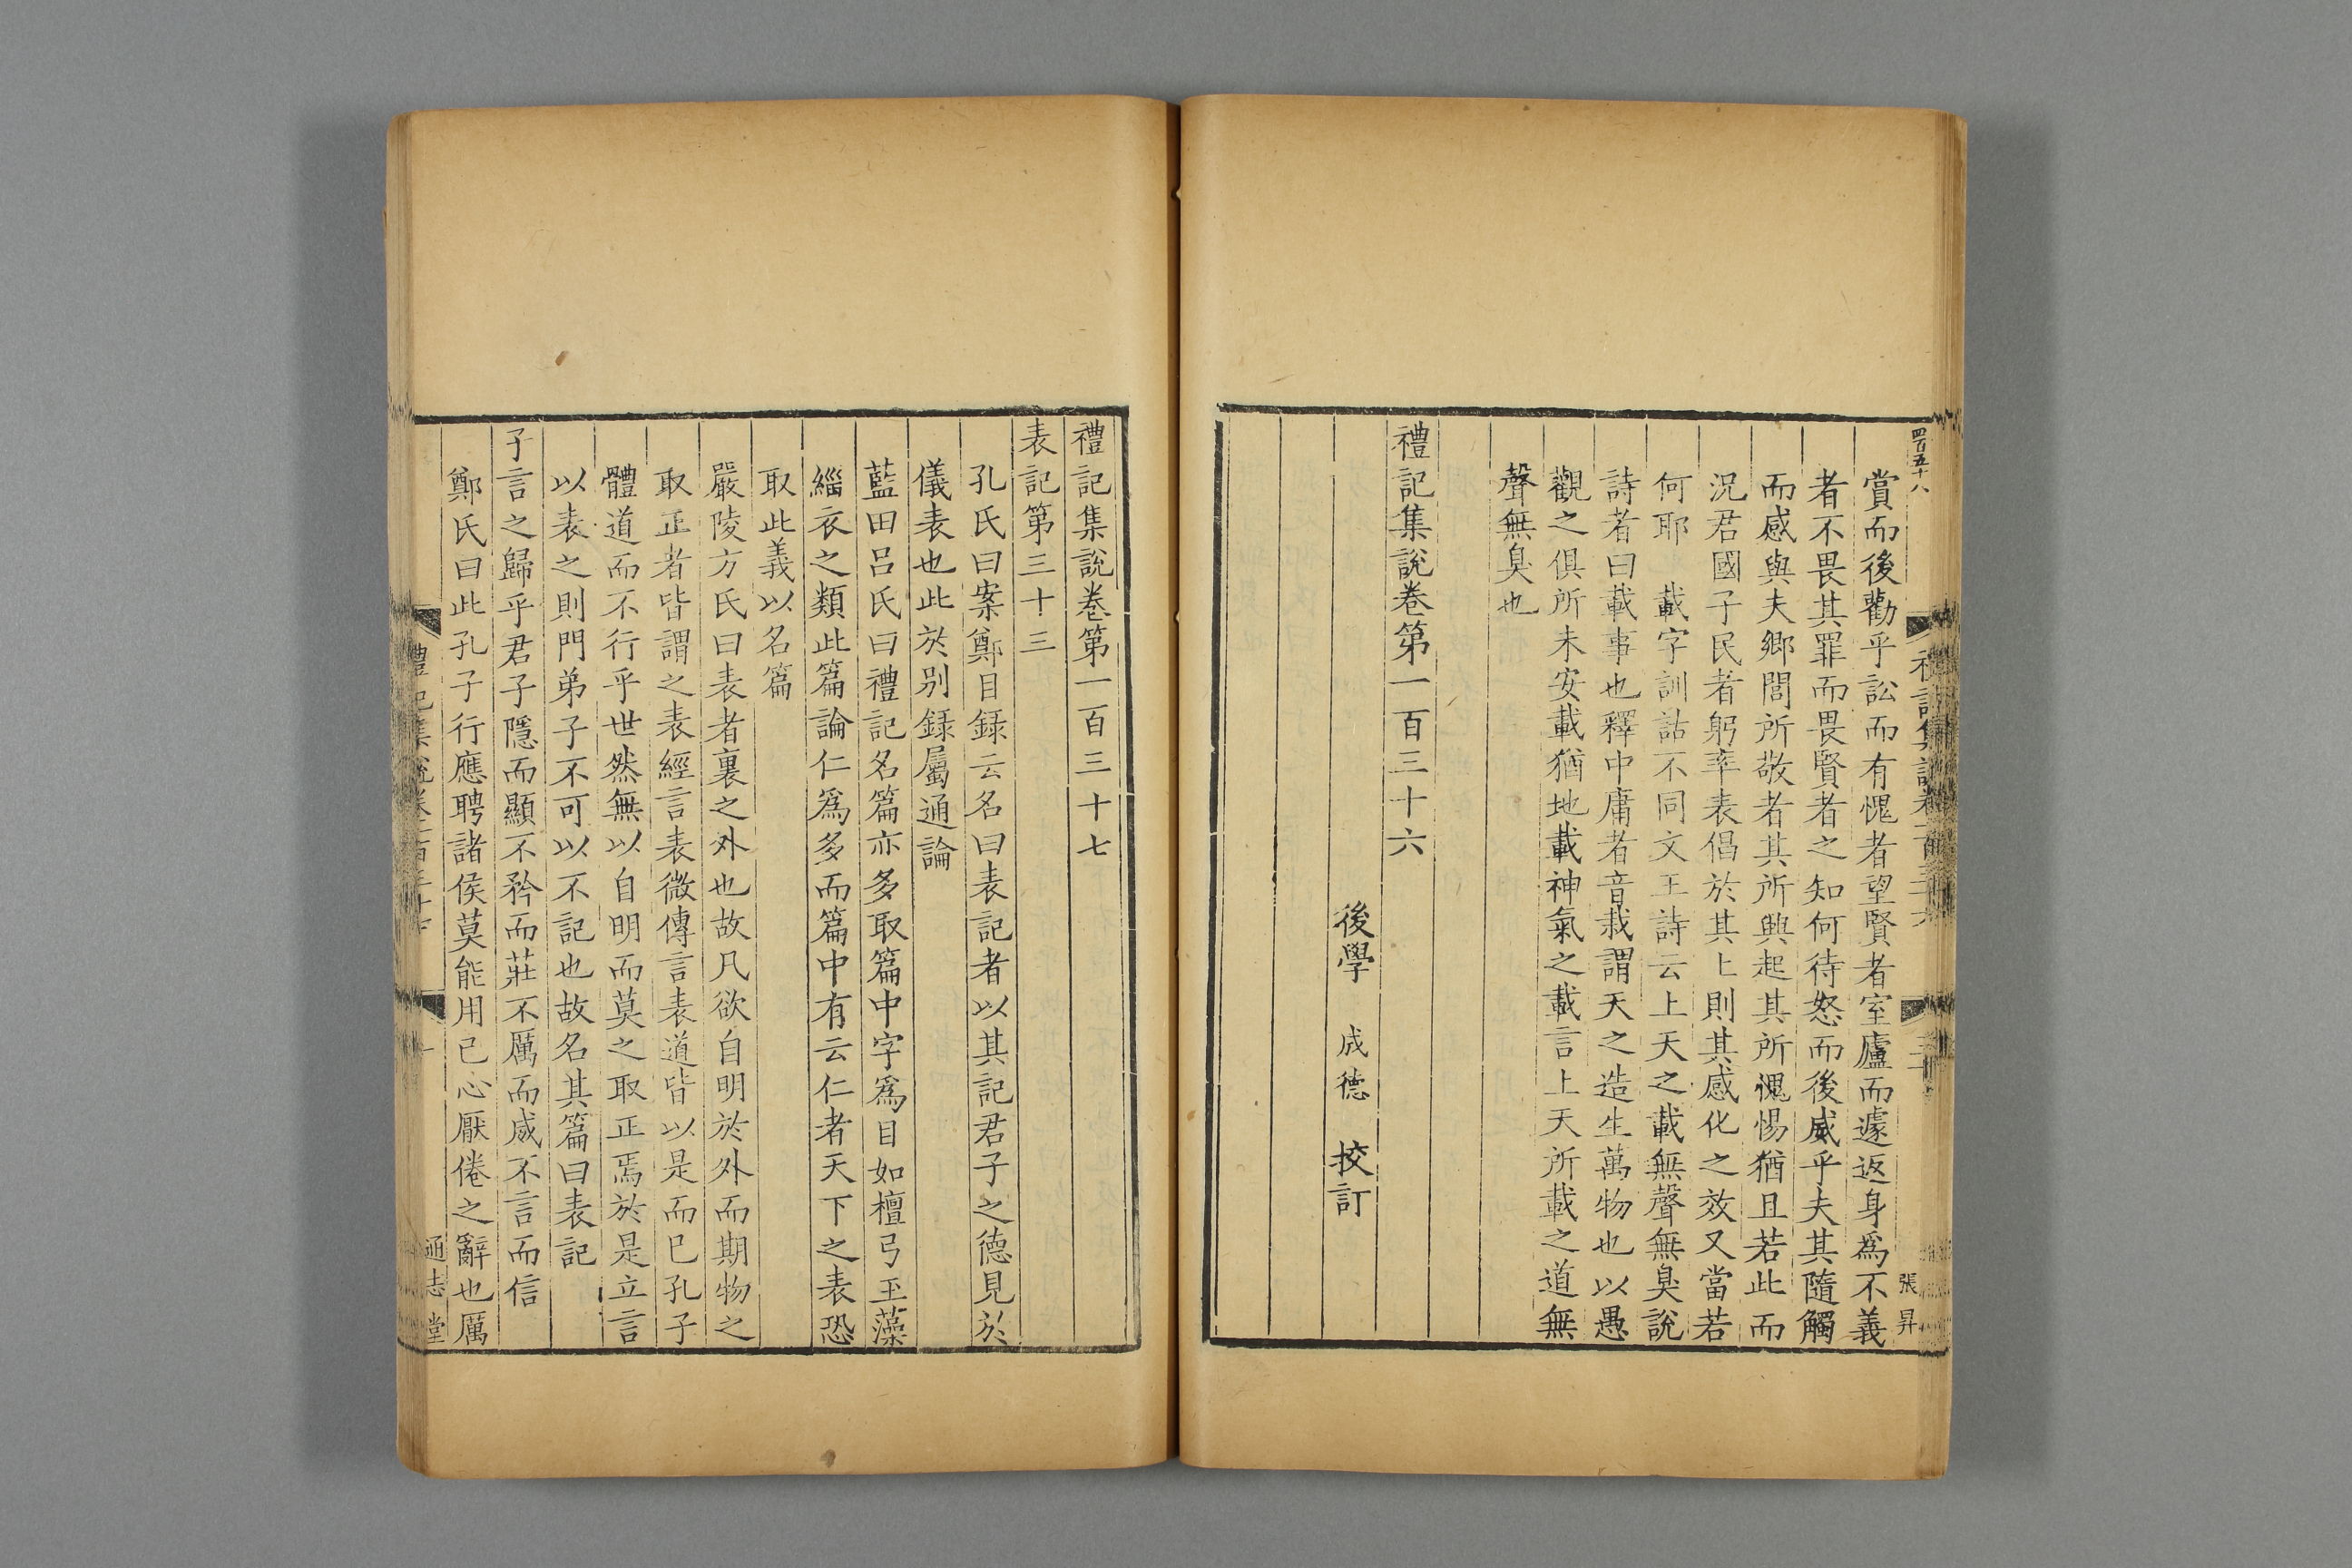 四百五十八
賞而後勸乎訟而有愧者望賢者室廬而遽返身爲不義
者不畏其罪而畏賢者之知何待怒而後威乎夫其隨觸
而感與夫鄉閭所敬者其所興起其所愧惕猶且若此而
況君國子民者躬率表倡於其上則其感化之效又當若
何耶 載字訓詁不同文王詩云上天之載無聲無臭說
詩者曰載事也釋中庸者音栽謂天之造生萬物也以愚
觀之俱所未安載猶地載神氣之載言上天所載之道無
聲無臭也
禮記集說卷第一百三十六
後學 成德 挍訂
張昇
禮記集說卷第一百三十七
表記第三十三
孔氏曰案鄭目録云名曰表記者以其記君子之德見於
儀表也此於别録屬通論
藍田呂氏曰禮記名篇亦多取篇中字爲目如檀弓玉藻
緇衣之類此篇論仁爲多而篇中有云仁者天下之表恐
取此義以名篇
嚴陵方氏曰表者裏之外也故凡欲自明於外而期物之
取正者皆謂之表經言表微傳言表道皆以是而已孔子
體道而不行乎世然無以自明而莫之取正焉於是立言
以表之則門弟子不可以不記也故名其篇曰表記
子言之歸乎君子隱而顯不矜而莊不厲而威不言而信
鄭氏曰此孔子行應聘諸侯莫能用己心厭倦之辭也厲
禮記集說卷一百三十七
一
通志堂